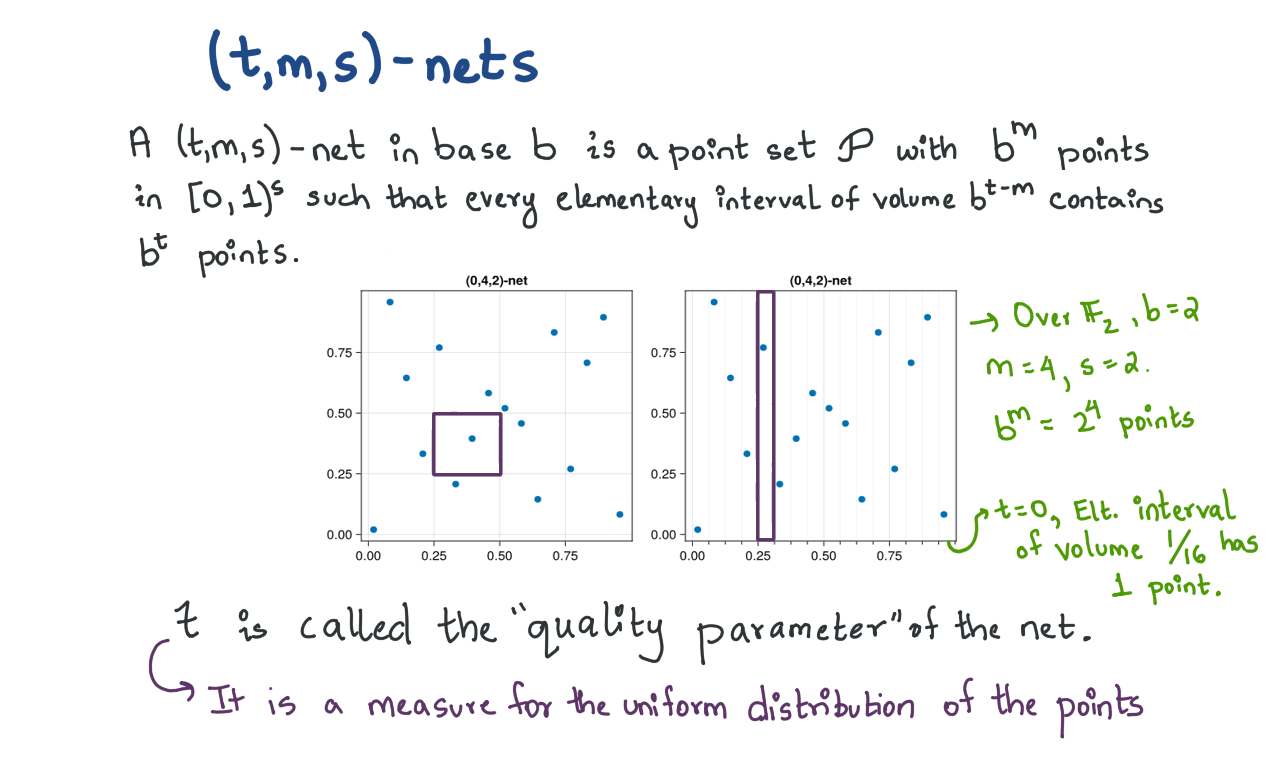 (t,m,s)-nets
A (t,m,s)-net in base b is a point set P with b^m points
in [0,1)^s such that every elementary interval of volume b^{t-m} contains
b^t points.
(0,4,2)-net
0.75
0.50
0.25
0.00
0.00 0.25 0.50 0.75
(0,4,2)-net
0.75
0.50
0.25
0.00
0.00 0.25 0.50 0.75
→ Over 𝔽₂, b=2
m=4, s=2.
b^m = 2^4 points
t=0, Elt. interval
of volume 1/16 has
1 point.
t is called the "quality parameter" of the net.
It is a measure for the uniform distribution of the points